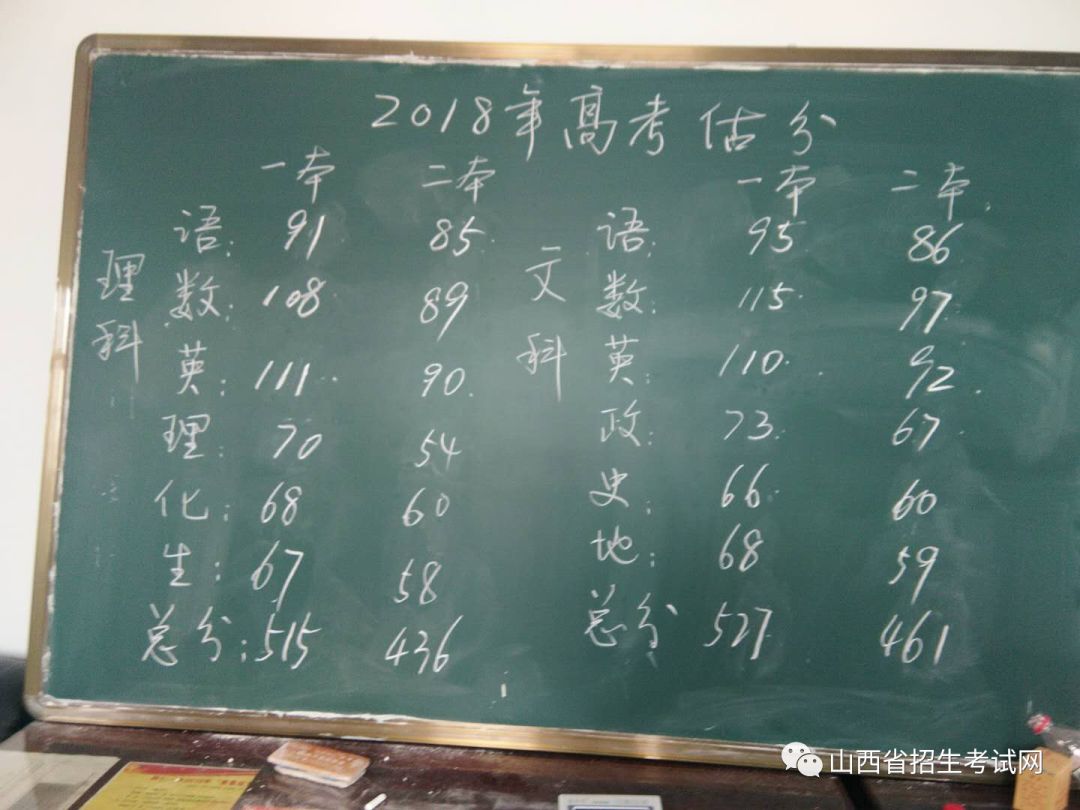 2018年高考估分
一本 二本 一本 二本
语: 91 85 语: 95 86
理科 数: 108 89 文科 数: 115 97
英: 111 90 英: 110 92
理: 70 54 政: 73 67
化: 68 60 史: 66 60
生: 67 58 地: 68 59
总分: 515 436 总分 527 461
山西省招生考试网